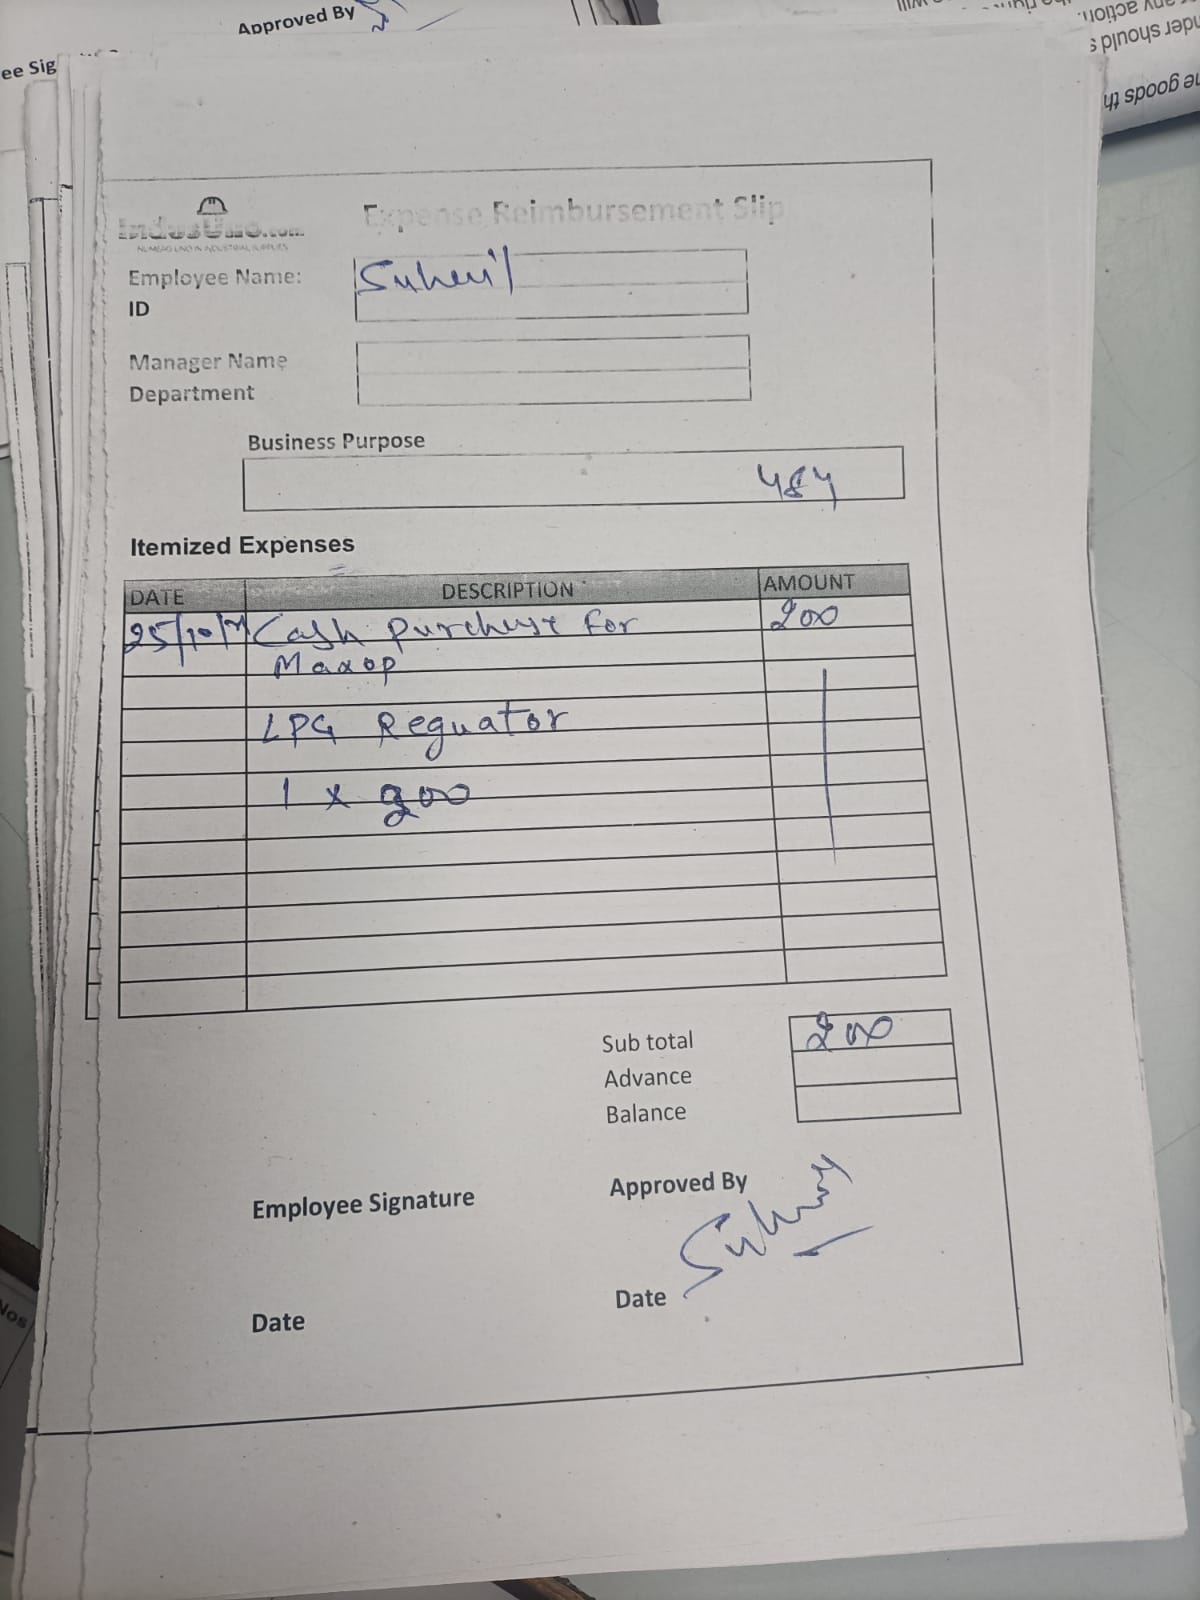 Approved By
ee Sig
any action.
nder should s
he goods th
IndusUno.com
NUMERO UNO IN INDUSTRIAL SUPPLIES
Expense Reimbursement Slip
Employee Name: Suheil
ID
Manager Name
Department
Business Purpose
484
Itemized Expenses
DATE DESCRIPTION AMOUNT
25/10/21 Cash Purchest For 200
Maxop
LPG Reguator
1 x 200
Sub total 200
Advance
Balance
Employee Signature
Approved By
Date
Date
Nos